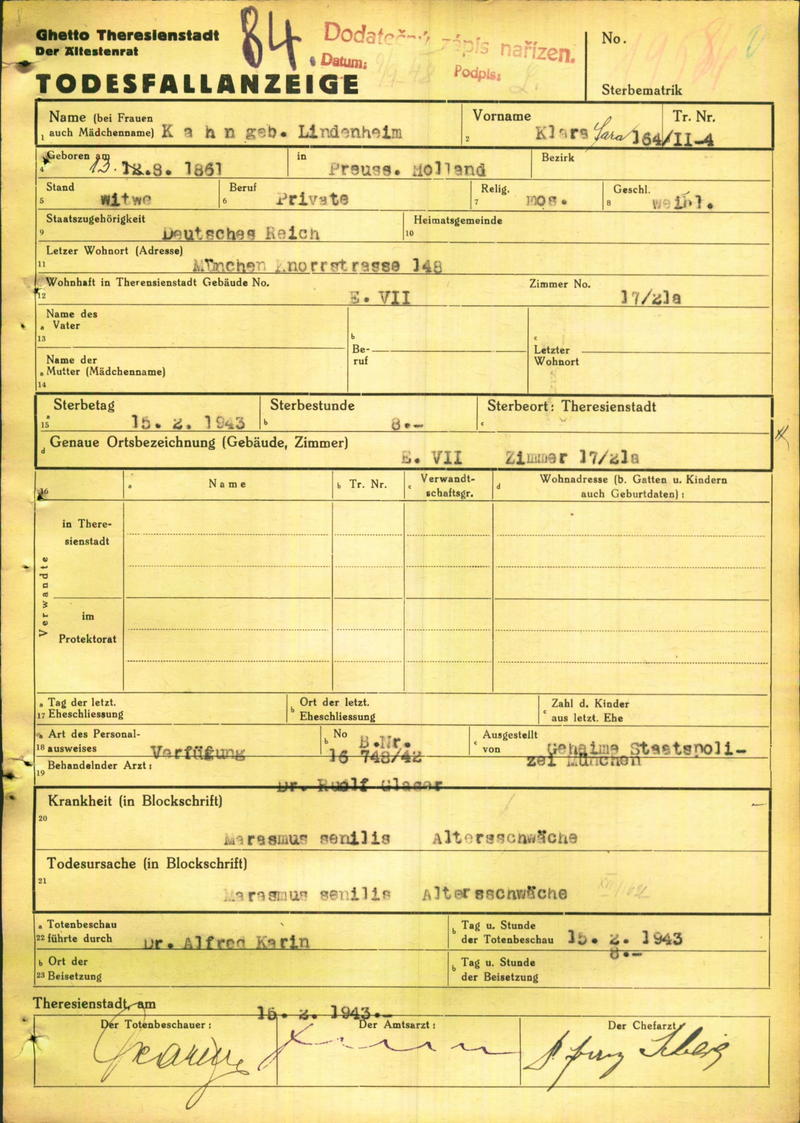 Ghetto Theresienstadt
Der Ältestenrat
TODESFALLANZEIGE
84.
Dodatečný zápis nařízen.
Datum:
Podpis:
No.
Sterbematrik
Name (bei Frauen auch Mädchenname) Kahn geb. Lindenheim
1
Vorname Klara Sara
2
Tr. Nr. 164/II-4
Geboren am 13. 12.8. 1861
4
in Preuss. Holland
Bezirk
Stand witwe
5
Beruf Private
6
Relig. mos.
7
Geschl. weibl.
8
Staatszugehörigkeit Deutsches Reich
9
Heimatsgemeinde
10
Letzer Wohnort (Adresse)
11 München Knorrstrasse 148
Wohnhaft in Theresienstadt Gebäude No. E. VII
12
Zimmer No. 17/21a
Name des
a Vater
13
b
Be-
ruf
c
Letzter
Wohnort
Name der
a Mutter (Mädchenname)
14
Sterbetag
a
15 15. 2. 1943
Sterbestunde
b 8.-
Sterbeort: Theresienstadt
c
d Genaue Ortsbezeichnung (Gebäude, Zimmer)
E. VII Zimmer 17/21a
16
a Name
b Tr. Nr.
c Verwandt-
schaftsgr.
d Wohnadresse (b. Gatten u. Kindern
auch Geburtdaten):
Verwandte
in There-
sienstadt
im
Protektorat
a Tag der letzt.
17 Eheschliessung
b Ort der letzt.
Eheschliessung
c Zahl d. Kinder
aus letzt. Ehe
a Art des Personal-
18 ausweises Verfügung
b No B.Nr.
16 748/42
c Ausgestellt
von Geheime Staatspoli-
zei München
Behandelnder Arzt:
19
Dr. Rudolf Glaser
Krankheit (in Blockschrift)
20
Marasmus senilis Altersschwäche
Todesursache (in Blockschrift)
21
Marasmus senilis Altersschwäche
a Totenbeschau
22 führte durch Dr. Alfred Karin
b Tag u. Stunde
der Totenbeschau 15. 2. 1943
8.-
b Ort der
23 Beisetzung
b Tag u. Stunde
der Beisetzung
Theresienstadt, am 15. 2. 1943.-
Der Totenbeschauer:
Der Amtsarzt:
Der Chefarzt